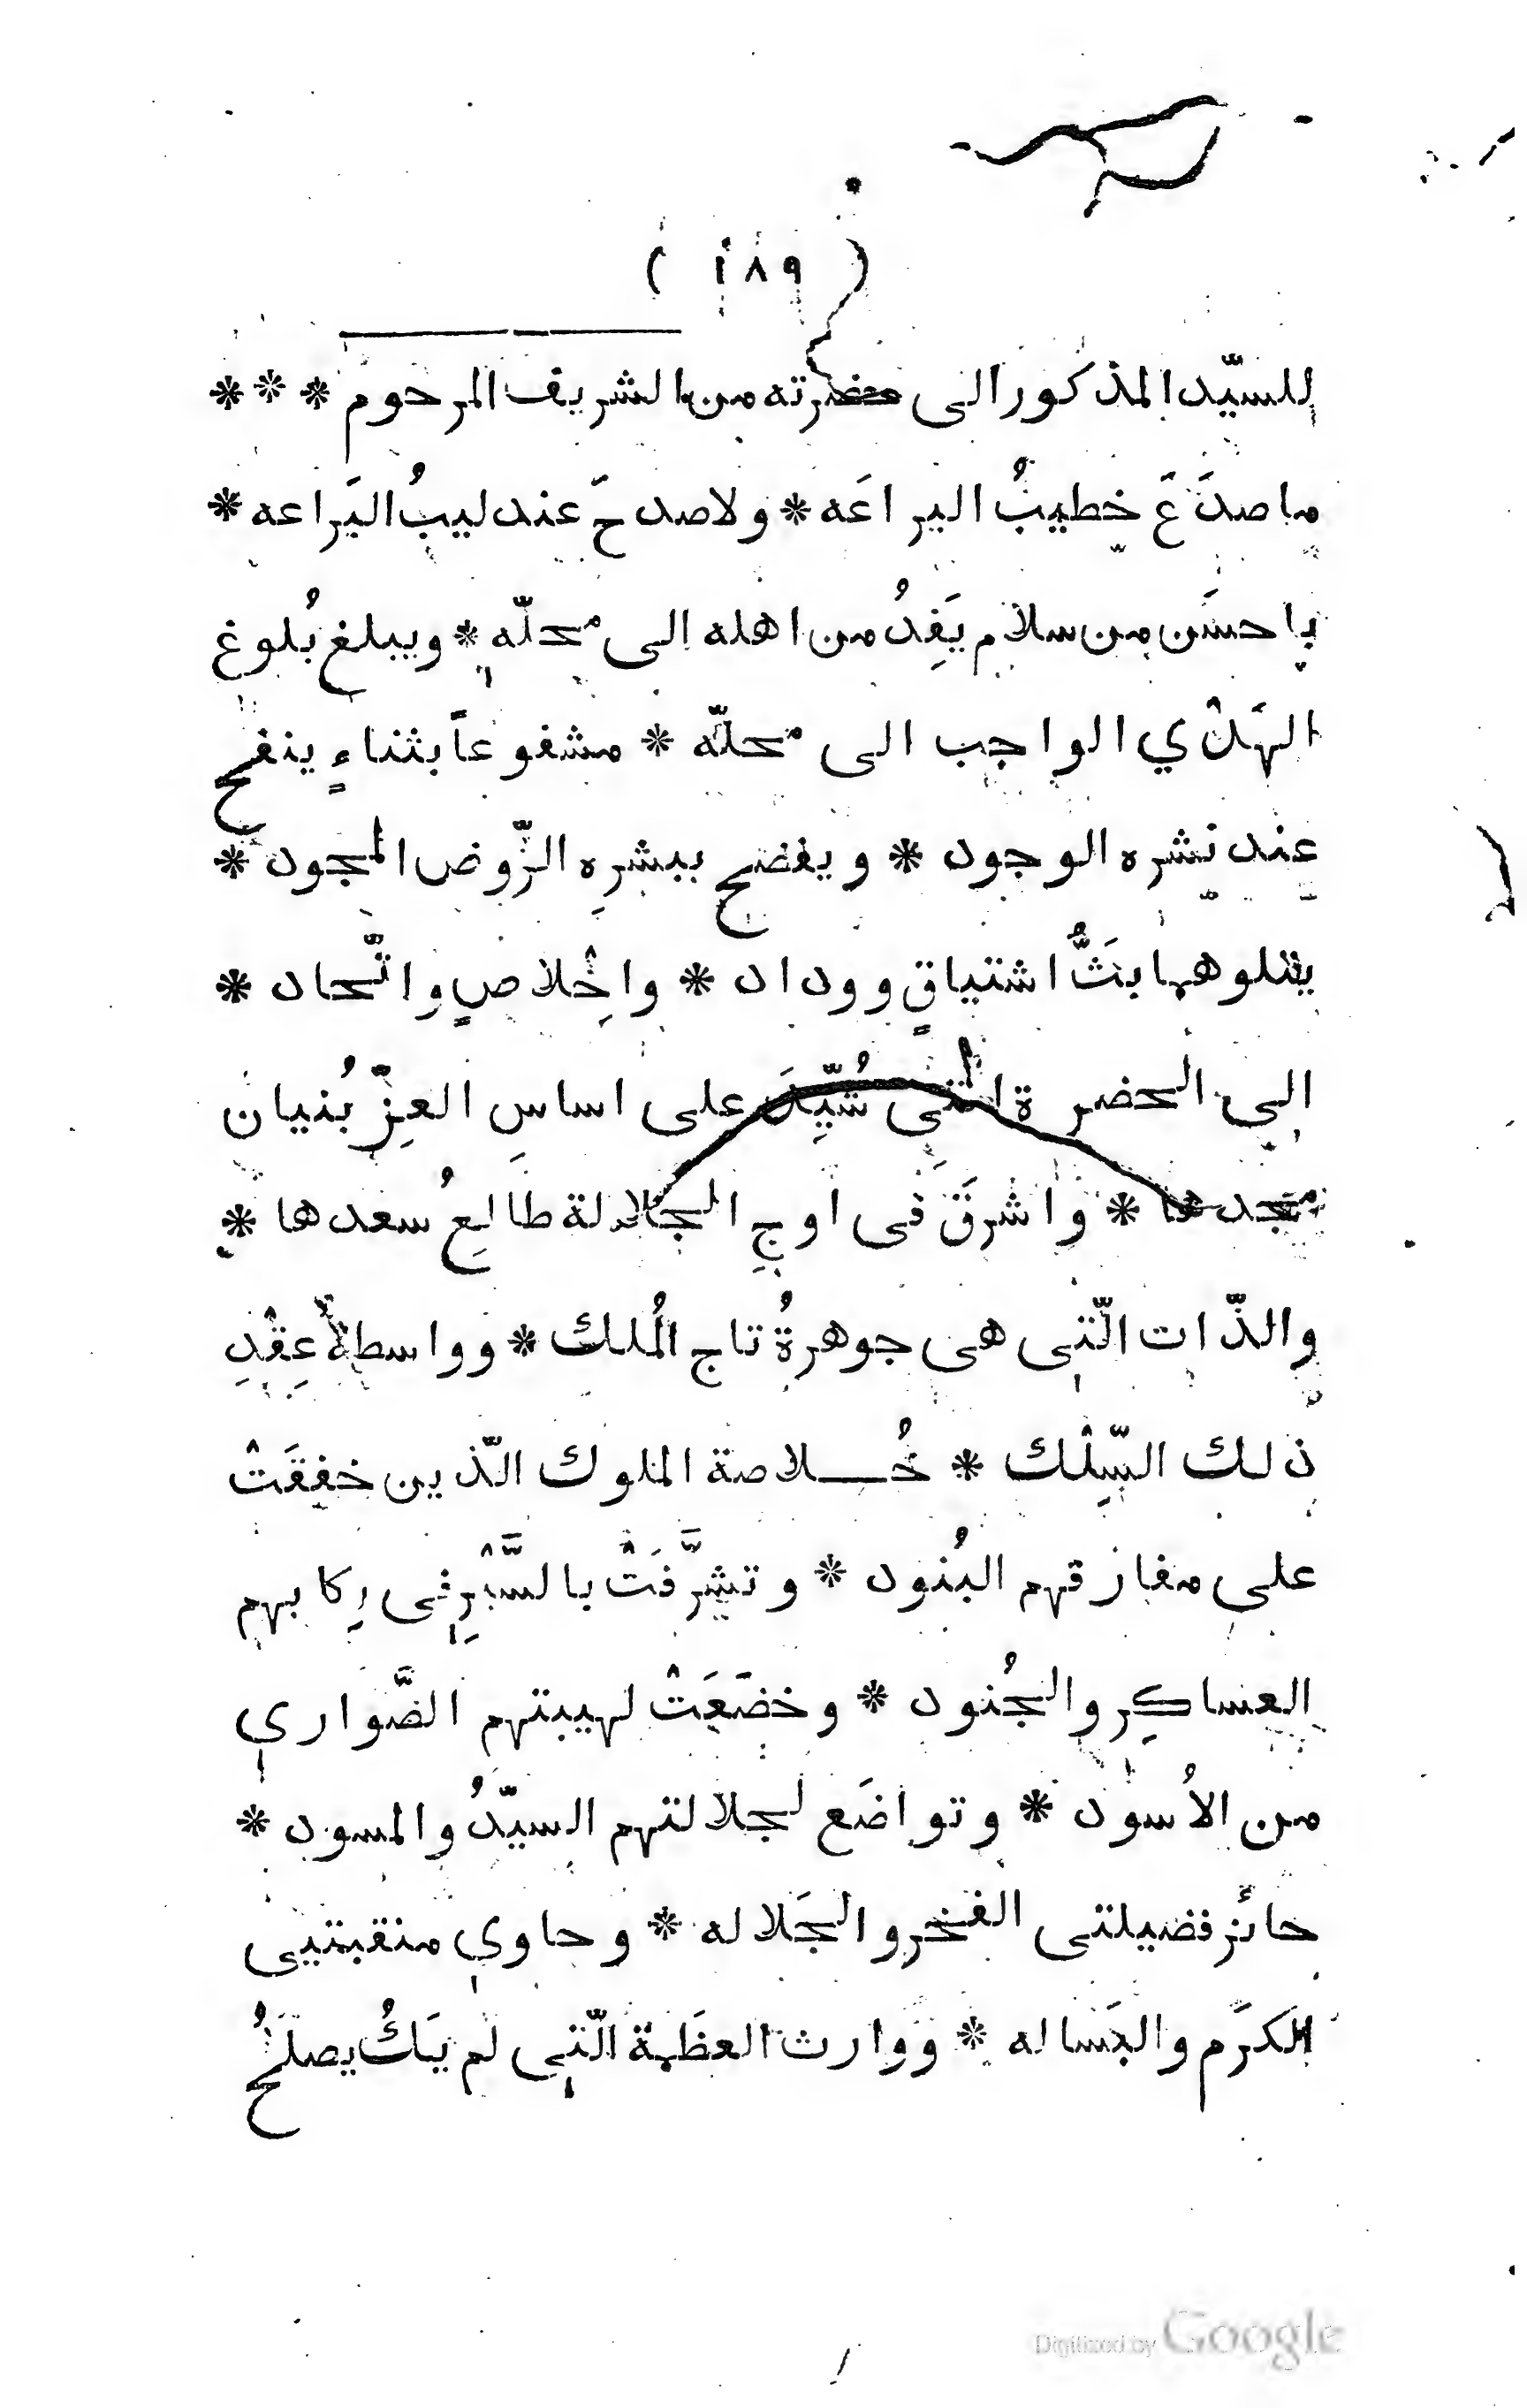 ( ١٨٩ )
للسيّد المذكور الى حضرته من الشريف المرحوم * * *
ما صدَعَ خطيبُ اليراعَه * ولا صدحَ عندليبُ اليَراعه *
باحسَن من سلام يَفِدُ من اهله الى محلّه * ويبلغ بُلوغ
الهَدْي الواجب الى محلّه * مشفوعاً بثناءٍ ينفح
عند نشره الوجود * ويفضح ببشرِه الرّوض المجود *
يتلوهما بثُّ اشتياقٍ ووداد * واخْلاصٍ واتّحاد *
الى الحضرة الّتى شُيِّدَ على اساسِ العِزّ بُنيان
مجدها * واشرقَ فى اوجِ الجلالة طالِعُ سعدها *
والذّات الّتى هى جوهرةُ تاج المُلك * وواسطةُ عِقْدِ
ذلك السِّلْك * خُلاصة الملوك الّذين خفقَتْ
على مفارقهم البُنود * وتشرَّفَتْ بالسَّيْرِ فى رِكابهم
العساكِر والجُنود * وخضَعَتْ لهيبتهم الضَّواري
من الاُسود * وتواضَع لجلالتهم السيّدُ والمسود *
حائز فضيلتى الفخر والجَلاله * وحاوي منقبتيى
الكرَم والبَساله * ووارث العظَمة الّتى لم يَكُ يصلَحُ
Digitized by Google